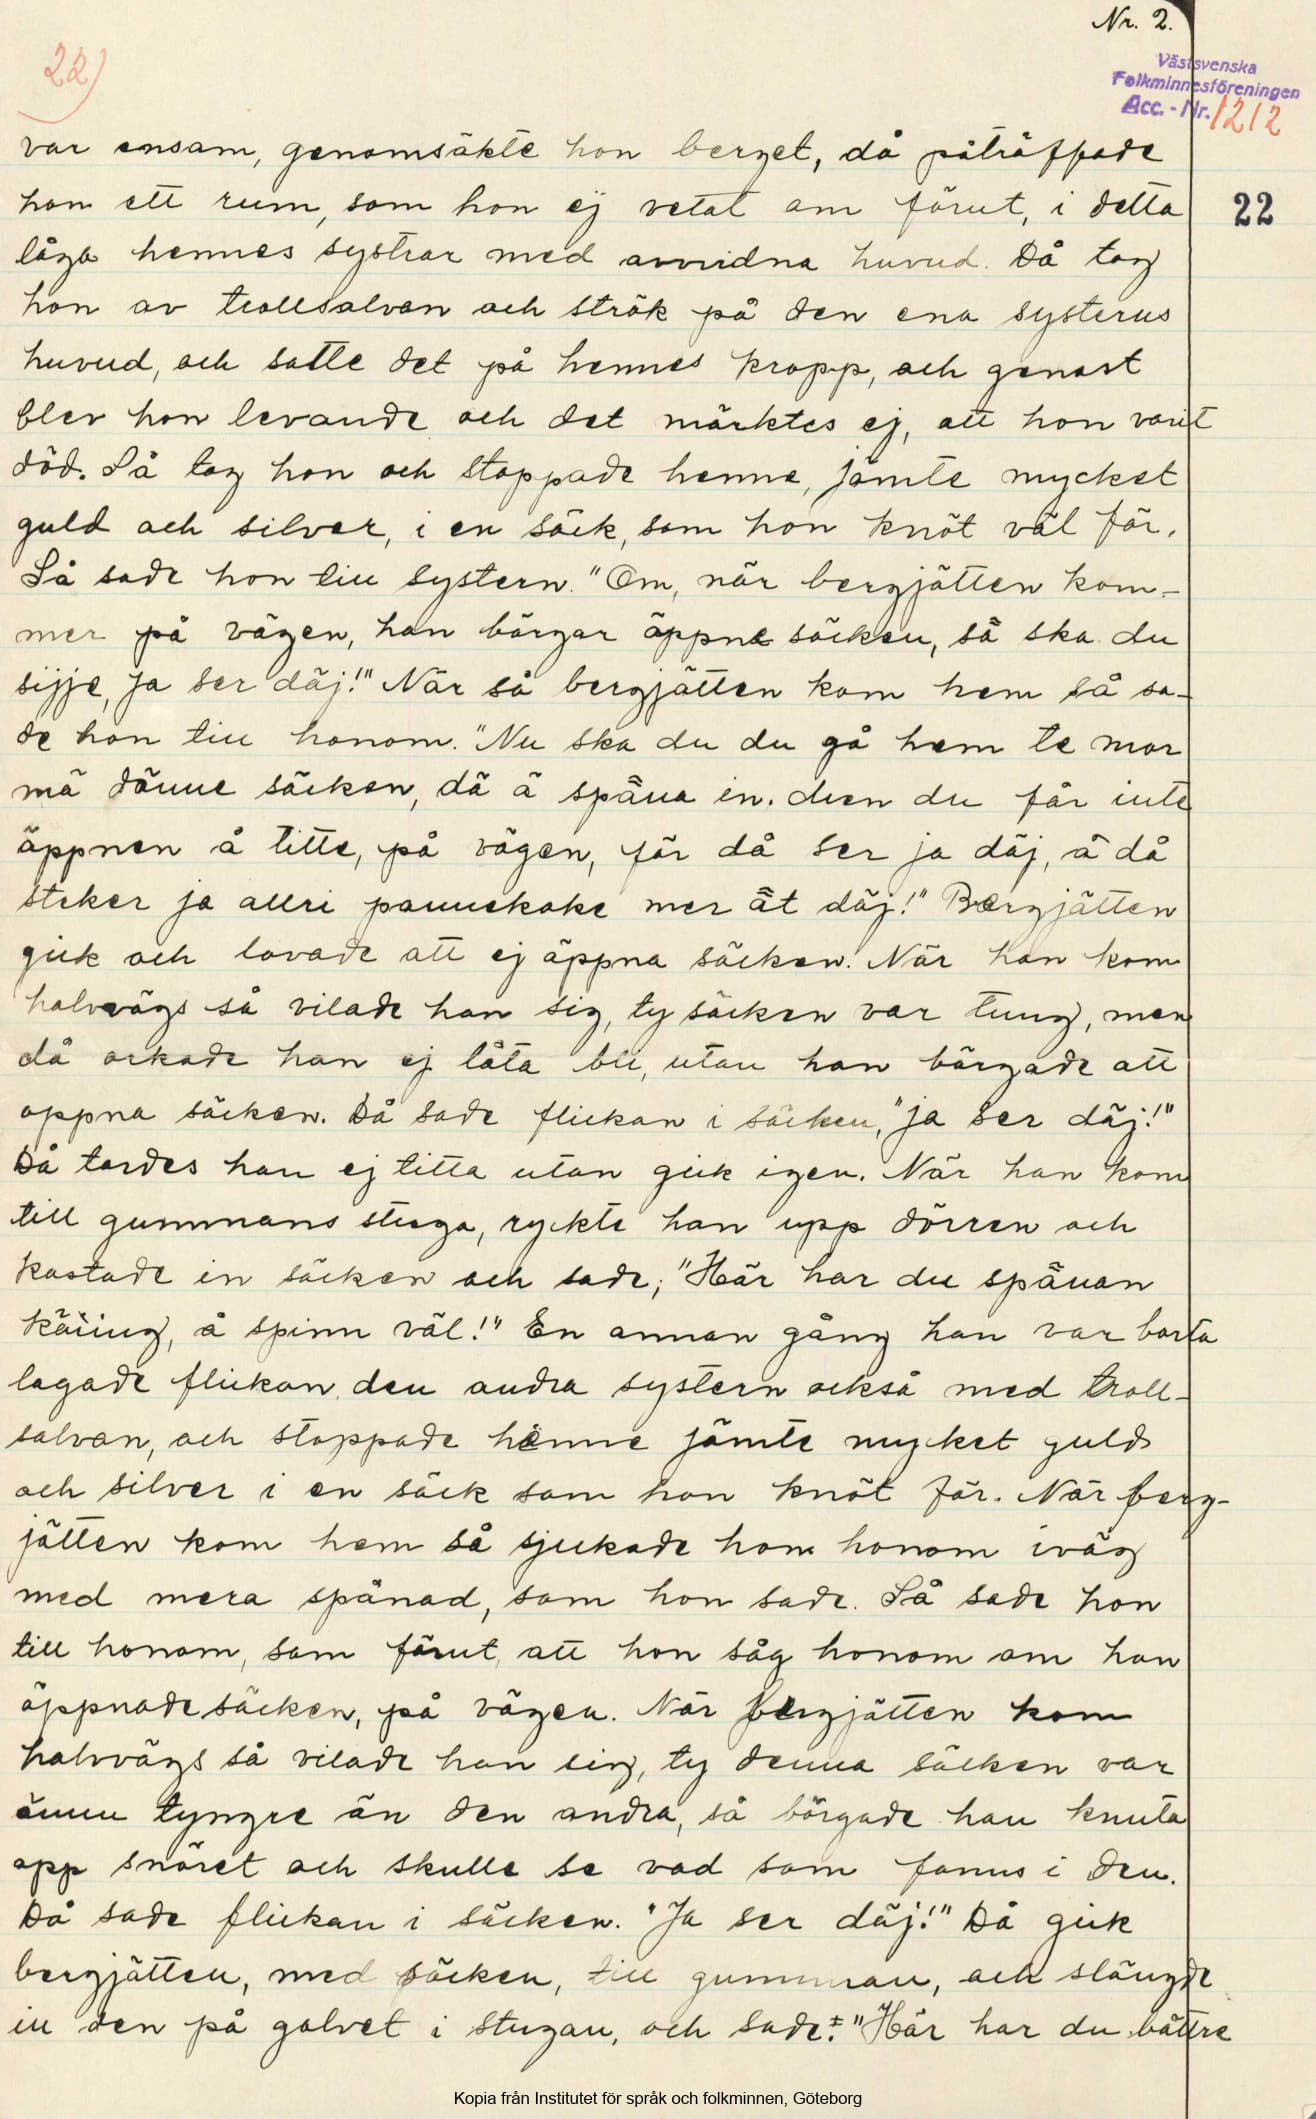 Nr. 2.
22)
Västsvenska
Folkminnesföreningen
Acc. - Nr. 1212
22
var ensam, genomsökte hon berget, då påträffade
hon ett rum, som hon ej vetat om förut, i detta
låga hennes systrar med avvridna huvud. Då tog
hon av trollsalvan och strök på den ena systerns
huvud, och satte det på hennes kropp, och genast
blev hon levande och det märktes ej, att hon varit
död. Så tog hon och stoppade henne, jämte mycket
guld och silver, i en säck, som hon knöt väl för.
Så sade hon till systern. "Om, när bergjätten kom-
mer på vägen, han börgar öppne säcken, så ska du
sijje, ja ser däj!" När så bergjätten kom hem så sa-
de hon till honom. "Nu ska du du gå hem te mor
mä dänne säcken, dä ä spåna in. Men du får inte
öppnen å titte, på vägen, för då ser ja däj, å då
steker ja allri pannekake mer åt däj!" Bergjätten
gick och lovade att ej öppna säcken. När han kom
halvvägs så vilade han sig, ty säcken var tung, men
då orkade han ej låta bli, utan han börgade att
öppna säcken. Då sade flickan i säcken, "ja ser däj!"
Då tordes han ej titta utan gick igen. När han kom
till gummans stuga, ryckte han upp dörren och
kastade in säcken och sade; "Här har du spånan
käring, å spinn väl!" En annan gång han var borta
lagade flickan den andra systern också med troll-
salvan, och stoppade henne jämte mycket guld
och silver i en säck som hon knöt för. När berg-
jätten kom hem så sjukade hon honom iväg
med mera spånad, som hon sade. Så sade hon
till honom, som förut, att hon såg honom om han
öppnade säcken, på vägen. När bergjätten kom
halvvägs så vilade han sig, ty denna säcken var
ännu tyngre än den andra, så börgade han knuta
opp snöret och skulle se vad som fanns i den.
Då sade flickan i säcken. "Ja ser däj!" Då gick
bergjätten, med säcken, till gumman, och slängde
in den på golvet i stugan, och sade: "Här har du bättre
Kopia från Institutet för språk och folkminnen, Göteborg